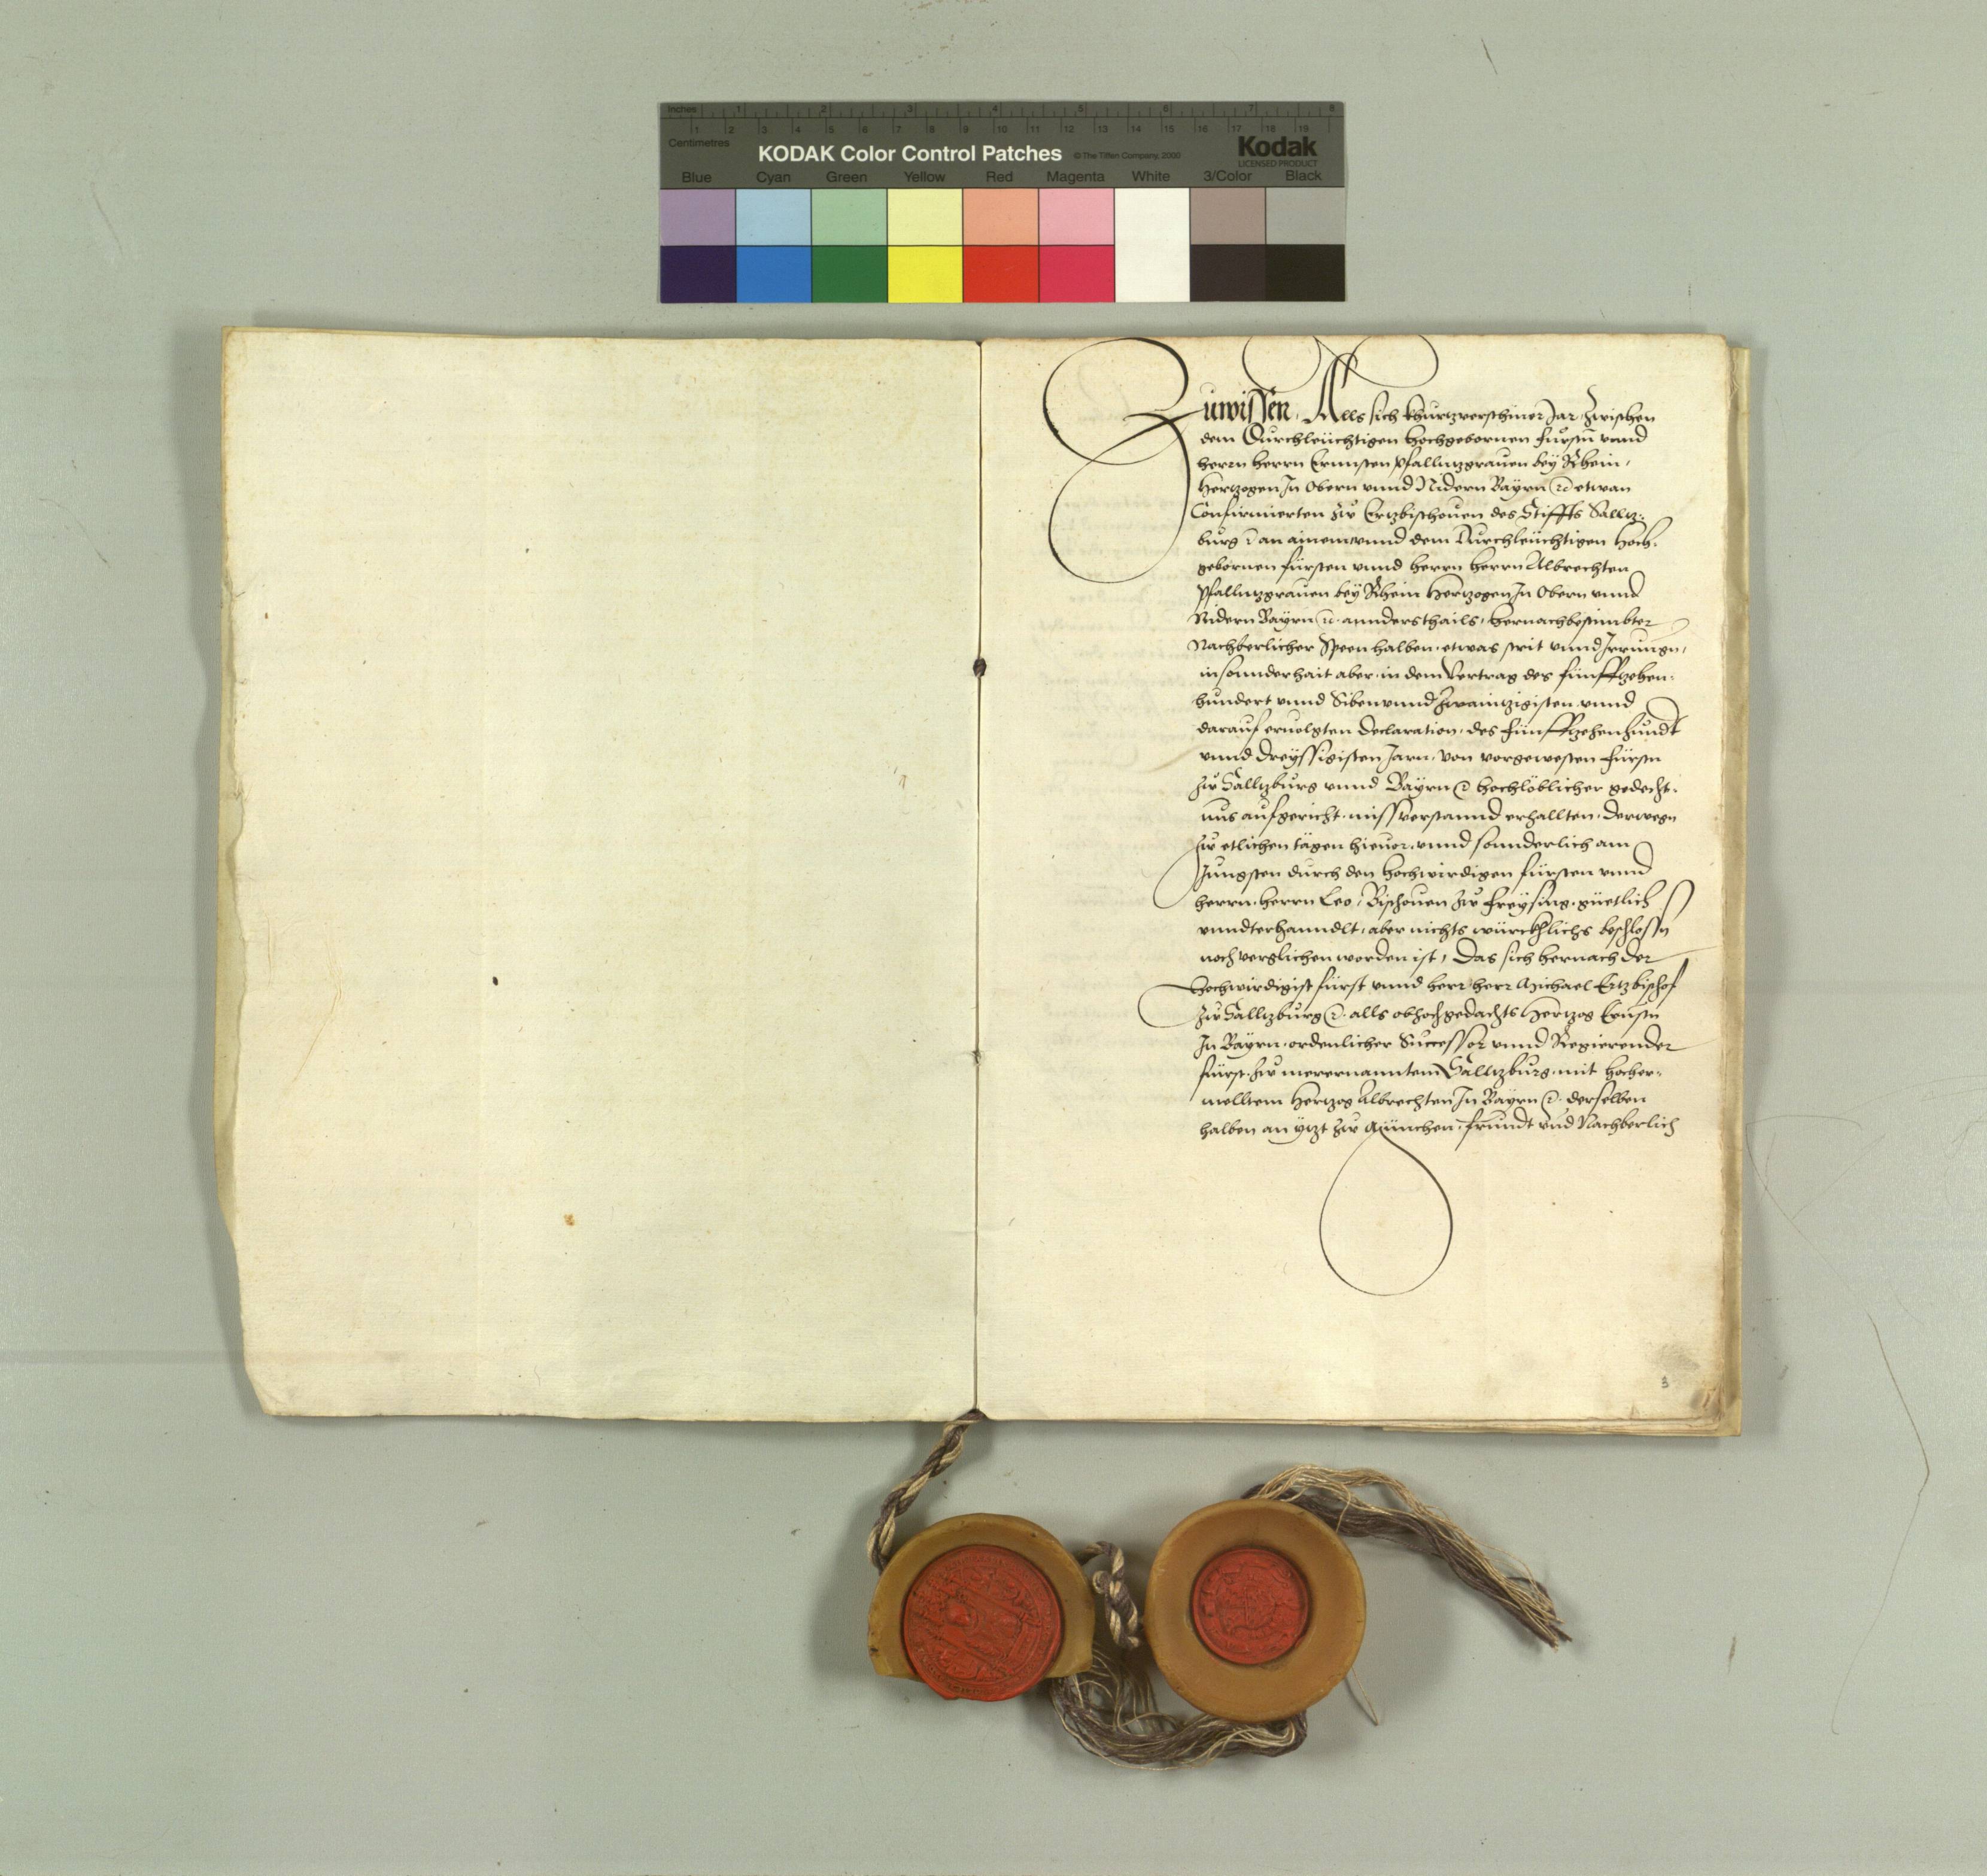 Inches 1 2 3 4 5 6 7 8
1 2 3 4 5 6 7 8 9 10 11 12 13 14 15 16 17 18 19
Centimetres
KODAK Color Control Patches © The Tiffen Company, 2000
Kodak
LICENSED PRODUCT
Blue Cyan Green Yellow Red Magenta White 3/Color Black
Zuwissen, Alls sich khurtzverschiner Jar, Zwischen
dem Durchleüchtigen hochgebornen fürstn vnnd
herrn herrn Ernnsten Pfalltzgrauen bey Rhein,
Hertzogen In Obern vnnd Nidern Bayrn etc etwan
Confirmierten zw Ertzbischouen des Stiffts Salltz-
burg etc an ainem vnnd dem Durchleüchtigen Hoch-
gebornen fürsten vnnd herrn herrn Albrechten
Pfalltzgrauen bey Rhein Hertzogen In Obern vnnd
Nidern Bayrn etc. annderstthails, hernachbestimbter
Nachberlicher Speen halben, etwas strit vnnd Irrungn,
insonnderhait aber in dem Vertrag des fünffzehen-
hundert vnnd Sibenvnndzwaintzigisten vnnd
darauf eruolgten Declaration, des fünffzehenhundt
vnnd dreyssigisten Jarn, von vorgewesten fürstn
zw Salltzburg vnnd Bayrn etc hochlöblicher gedecht-
nus aufgericht, missverstannd erhallten, derwegn
zw etlichen tägen hieuor, vnnd sonnderlich am
Jungsten durch den hochwirdigen fürsten vnnd
herrn, herrn Leo, Bischouen zw Freysing, güetlich
vnndterhanndlt, aber nichts würckhlichs beschlossn
noch verglichen worden ist, Das sich hernach der
Hochwirdigist fürst vnnd herr herr Michael Ertzbischof
zw Salltzburg etc. alls obhochgedachts Hertzog Ernstn
In Bayrn, ordenlicher Successor vnnd Regierender
fürst, zw merernanntem Salltzburg, mit hocher-
melltem Hertzog Albrechten In Bayrn etc. derselben
halben an yetzt zw München, frundt vnd Nachberlich
3